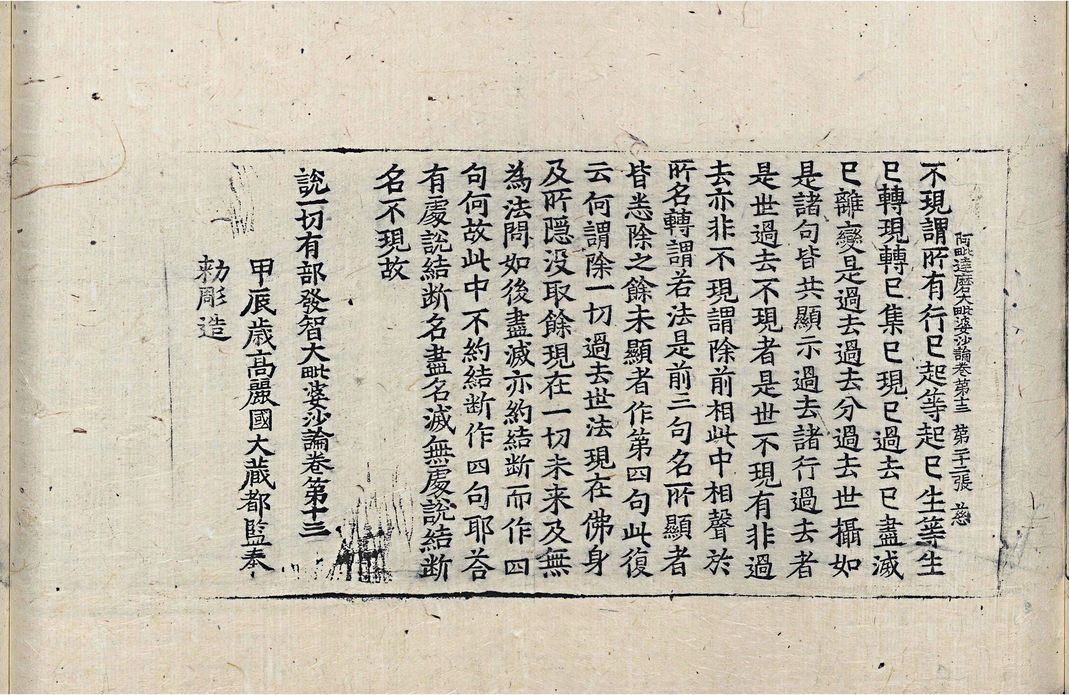 阿毗達磨大毗婆沙論卷第十三 第二十二張 慈
不現謂所有行已起等起已生等生
已轉現轉已集已現已過去已盡滅
已離變是過去過去分過去世攝如
是諸句皆共顯示過去諸行過去者
是世過去不現者是世不現有非過
去亦非不現謂除前相此中相聲於
所名轉謂若法是前三句名所顯者
皆悉除之餘未顯者作第四句此復
云何謂除一切過去世法現在佛身
及所隱没取餘現在一切未来及無
為法問如後盡滅亦約結斷而作四
句何故此中不約結斷作四句耶荅
有處說結断名盡名滅無處說結断
名不現故
說一切有部發智大毗婆沙論卷第十三
甲辰歳高麗國大藏都監奉
勑彫造